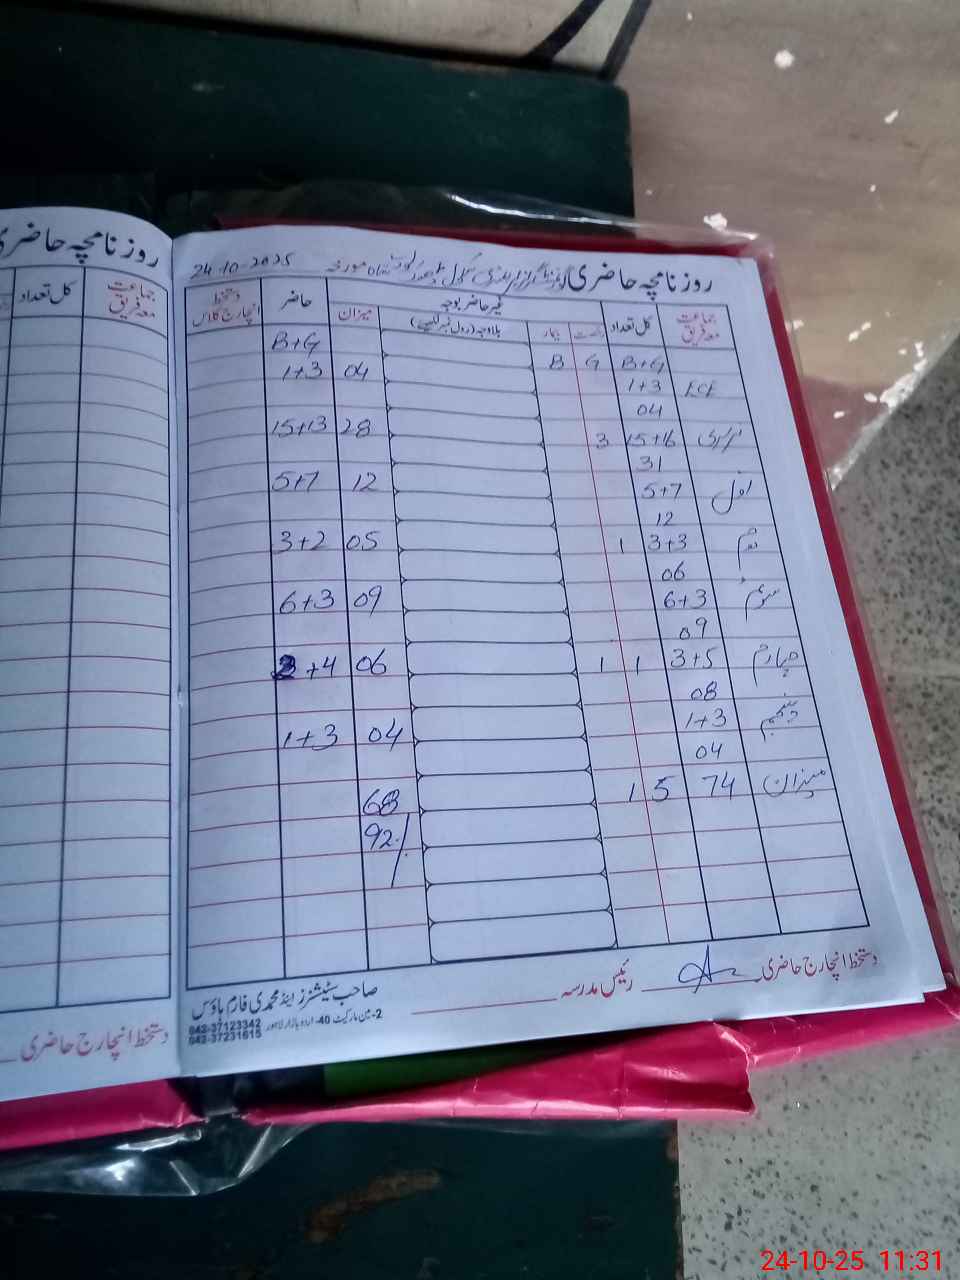 روزنامچہ حاضری
جماعت معہ فریق
کل تعداد
دستخط انچارج حاضری
روزنامچہ حاضری گورنمنٹ گرلز پرائمری سکول مورخہ 24-10-2025
جماعت معہ فریق کل تعداد غیر حاضر بوجہ حاضر دستخط انچارج کلاس
رخصت بیمار بلاوجہ (رول نمبر لکھیے) میزان
B+G G B B+G
ECE 1+3 04 1+3
04
نرسری 15+16 3 28 15+13
31
اول 5+7 12 5+7
12
دوم 3+3 1 05 3+2
06
سوئم 6+3 09 6+3
09
چہارم 3+5 1 1 06 2+4
08
پنجم 1+3 04 1+3
04
میزان 74 5 1 68
92%
دستخط انچارج حاضری رئیس مدرسہ
صاحب سٹیشنرز اینڈ محمدی فارم ہاؤس
2-مین مارکیٹ 40-اردو بازار لاہور
042-37123342
042-37231615
24-10-25 11:31